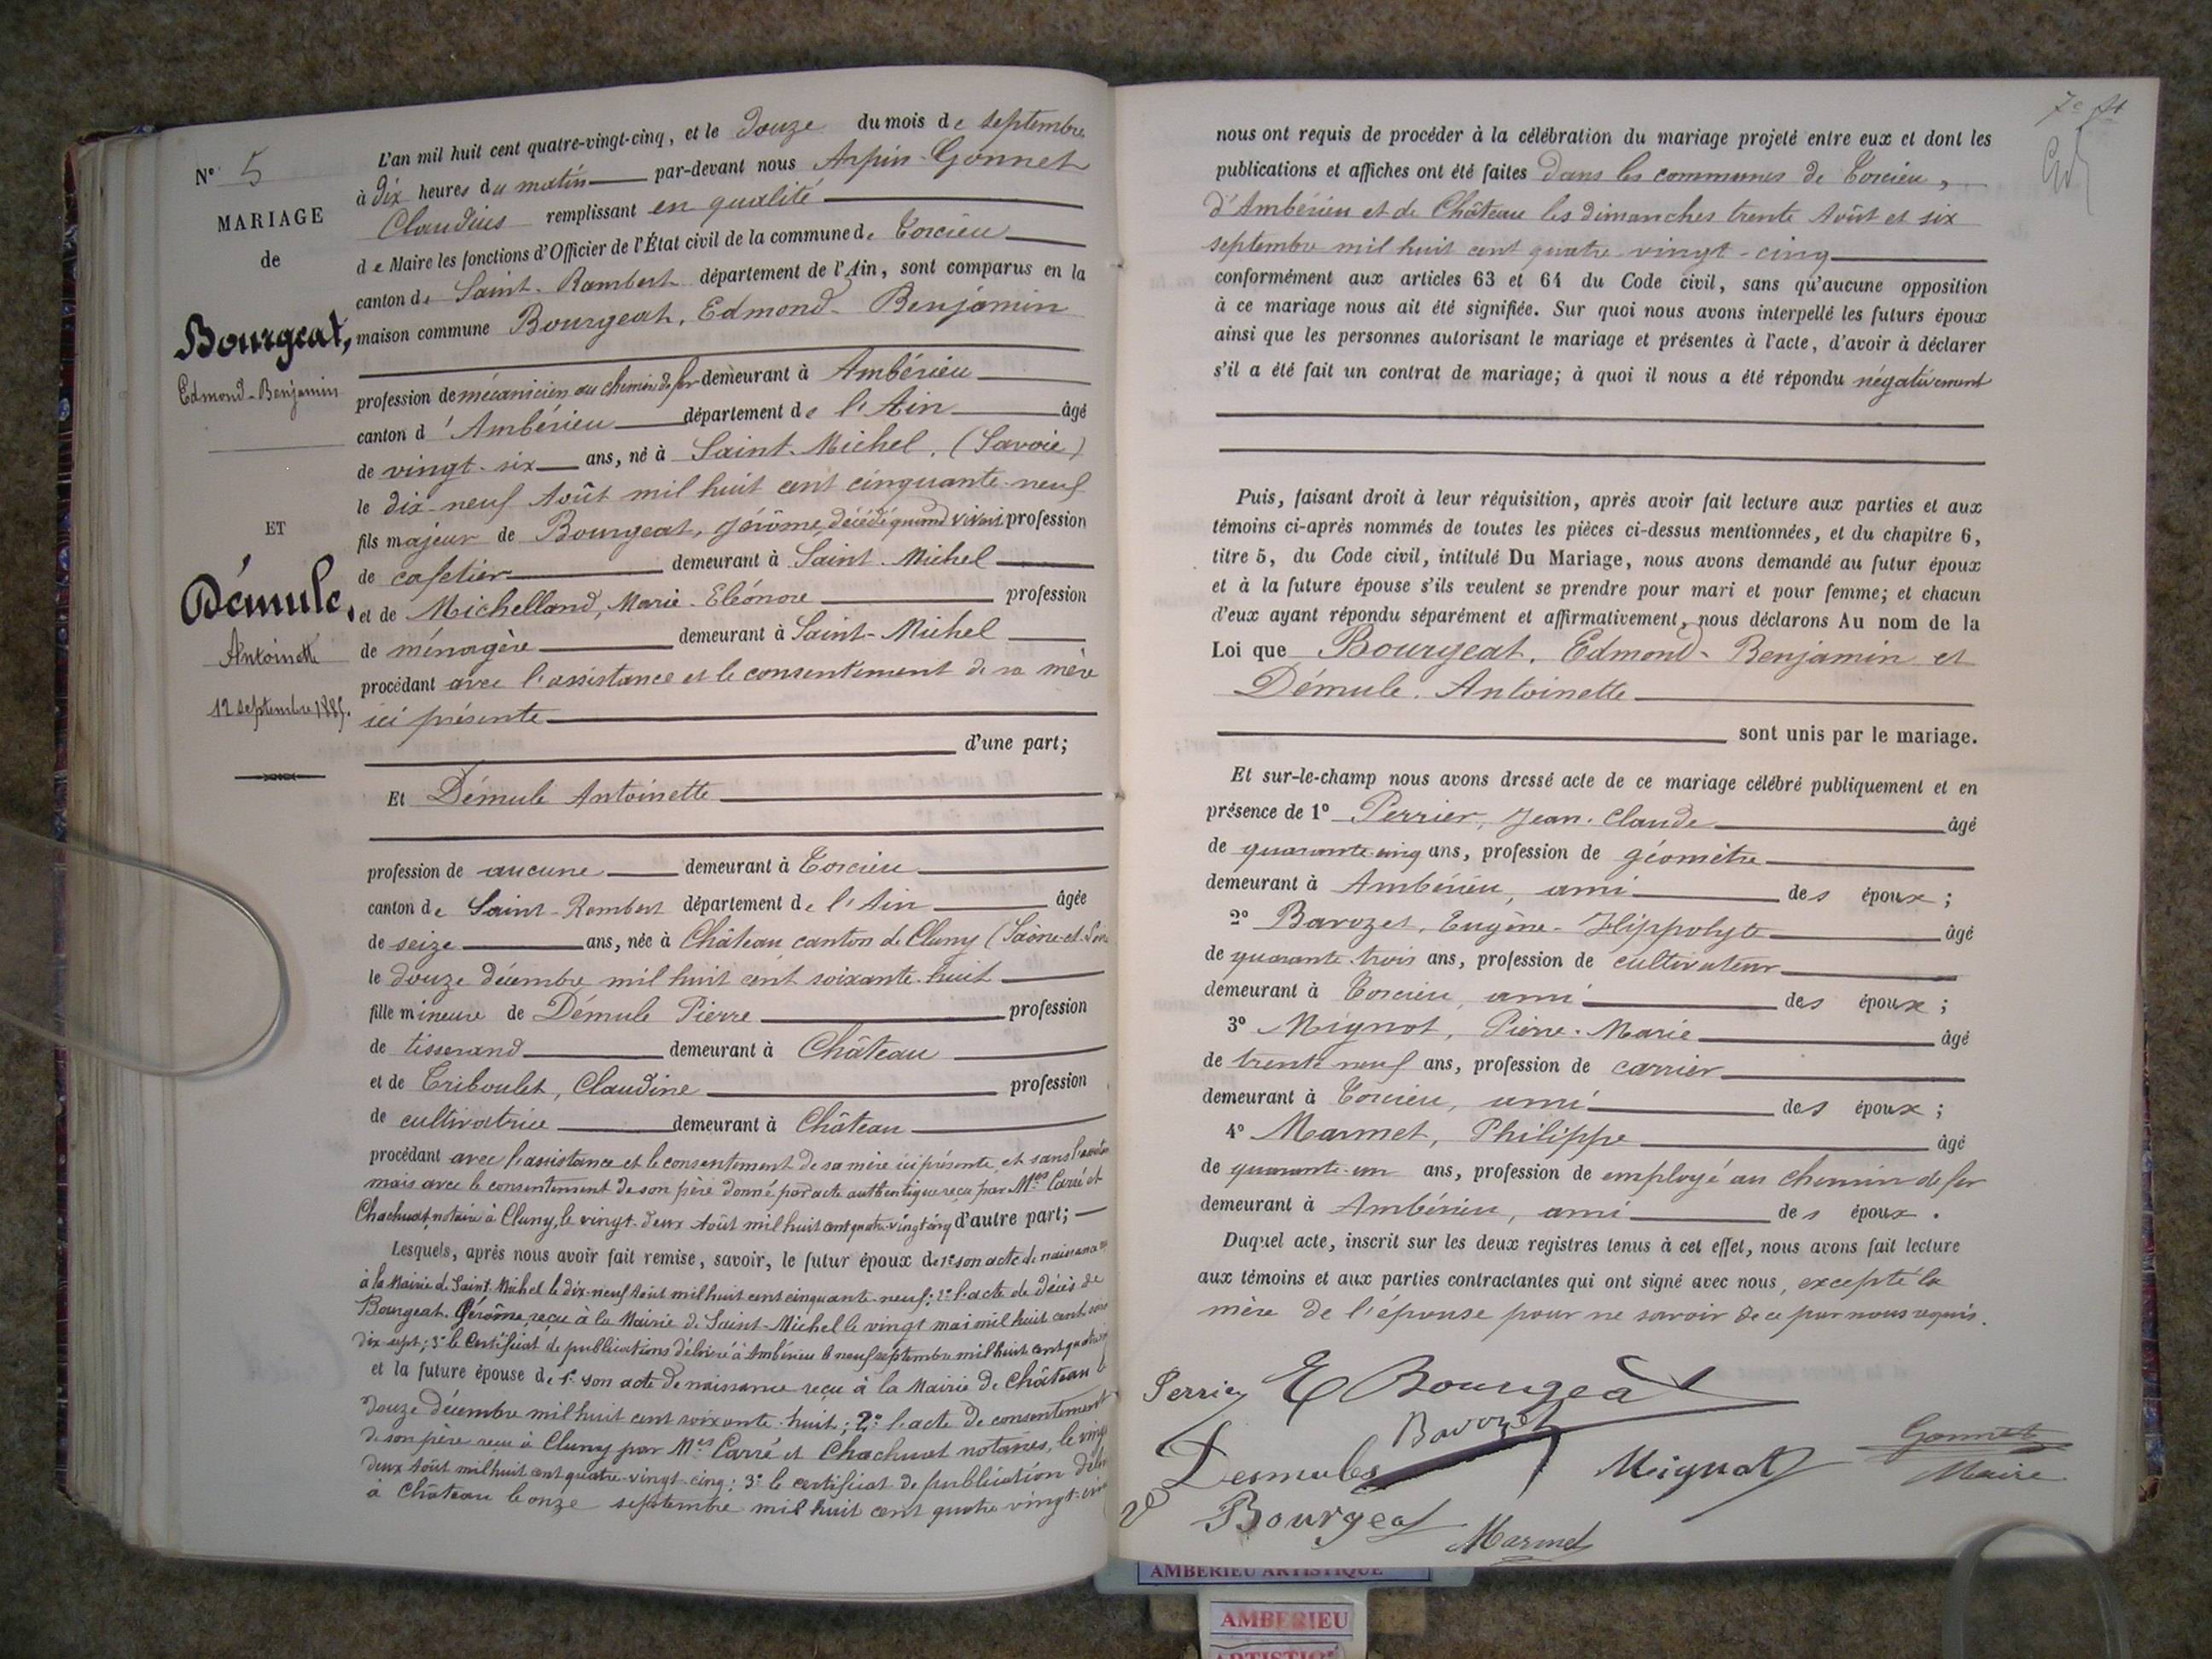 N° 5
MARIAGE
de
Bourgeat,
Edmond-Benjamin
ET
Démule,
Antoinette
12 septembre 1885.
L'an mil huit cent quatre-vingt-cinq, et le douze du mois de septembre
à dix heures du matin par-devant nous Arpin-Gonnet
Claudius remplissant en qualité
de Maire les fonctions d'Officier de l'État civil de la commune de Torcieu
canton de Saint-Rambert département de l'Ain, sont comparus en la
maison commune Bourgeat, Edmond-Benjamin
profession de mécanicien au chemin de fer demeurant à Ambérieu
canton d'Ambérieu département de l'Ain âgé
de vingt-six ans, né à Saint-Michel, (Savoie)
le dix-neuf Août mil huit cent cinquante-neuf
fils majeur de Bourgeat, Jérôme, décédé quand vivait profession
de cafetier demeurant à Saint-Michel
et de Michelland, Marie-Eléonore profession
de ménagère demeurant à Saint-Michel
procédant avec l'assistance et le consentement de sa mère
ici présente
d'une part;
Et Démule Antoinette
profession de aucune demeurant à Torcieu
canton de Saint-Rambert département de l'Ain âgée
de seize ans, née à Château canton de Cluny (Saône-et-Loire
le douze décembre mil huit cent soixante-huit
fille mineure de Démule Pierre profession
de tisserand demeurant à Château
et de Triboulet, Claudine profession
de cultivatrice demeurant à Château
procédant avec l'assistance et le consentement de sa mère ici présente, et sans
mais avec le consentement de son père donné par acte authentique reçu par Mes Carré et
Chachuat, notaire à Cluny, le vingt-deux Août mil huit cent quatre-vingt-cinq d'autre part;
Lesquels, après nous avoir fait remise, savoir, le futur époux de 1° son acte de naissance
à la Mairie de Saint-Michel le dix-neuf Août mil huit cent cinquante-neuf; 2° l'acte de décès de
Bourgeat, Jérôme, reçu à la Mairie de Saint-Michel le vingt mai mil huit cent
dix-sept; 3° le certificat de publications délivré à Ambérieu le neuf septembre mil huit cent
et la future épouse de 1° son acte de naissance reçu à la Mairie de Château
douze décembre mil huit cent soixante-huit; 2° l'acte de consentement
de son père reçu à Cluny par Mes Carré et Chachuat notaires, le vingt
deux Août mil huit cent quatre-vingt-cinq; 3° le certificat de publication
à Château le onze septembre mil huit cent quatre vingt-cinq
nous ont requis de procéder à la célébration du mariage projeté entre eux et dont les
publications et affiches ont été faites dans les communes de Torcieu,
d'Ambérieu et de Château les dimanches trente Août et six
septembre mil huit cent quatre-vingt-cinq
conformément aux articles 63 et 64 du Code civil, sans qu'aucune opposition
à ce mariage nous ait été signifiée. Sur quoi nous avons interpellé les futurs époux
ainsi que les personnes autorisant le mariage et présentes à l'acte, d'avoir à déclarer
s'il a été fait un contrat de mariage; à quoi il nous a été répondu négativement
Puis, faisant droit à leur réquisition, après avoir fait lecture aux parties et aux
témoins ci-après nommés de toutes les pièces ci-dessus mentionnées, et du chapitre 6,
titre 5, du Code civil, intitulé Du Mariage, nous avons demandé au futur époux
et à la future épouse s'ils veulent se prendre pour mari et pour femme; et chacun
d'eux ayant répondu séparément et affirmativement, nous déclarons Au nom de la
Loi que Bourgeat, Edmond-Benjamin et
Démule, Antoinette
sont unis par le mariage.
Et sur-le-champ nous avons dressé acte de ce mariage célébré publiquement et en
présence de 1° Perrier, Jean-Claude âgé
de quarante-cinq ans, profession de géomètre
demeurant à Ambérieu, ami des époux;
2° Barozet, Eugène-Hippolyte âgé
de quarante-trois ans, profession de cultivateur
demeurant à Torcieu, ami des époux;
3° Mignot, Pierre-Marie âgé
de trente-neuf ans, profession de carrier
demeurant à Torcieu, ami des époux;
4° Marmet, Philippe âgé
de quarante-un ans, profession de employé au chemin de fer
demeurant à Ambérieu, ami des époux.
Duquel acte, inscrit sur les deux registres tenus à cet effet, nous avons fait lecture
aux témoins et aux parties contractantes qui ont signé avec nous, excepté la
mère de l'épouse pour ne savoir de ce par nous requis.
Perrier E Bourgeat
Barozet
Demules Mignot Gonnet
Maire
Ve Bourgeat
Marmet
AMBERIEU ARTISTIQUE
AMBERIEU
ARTISTIQ